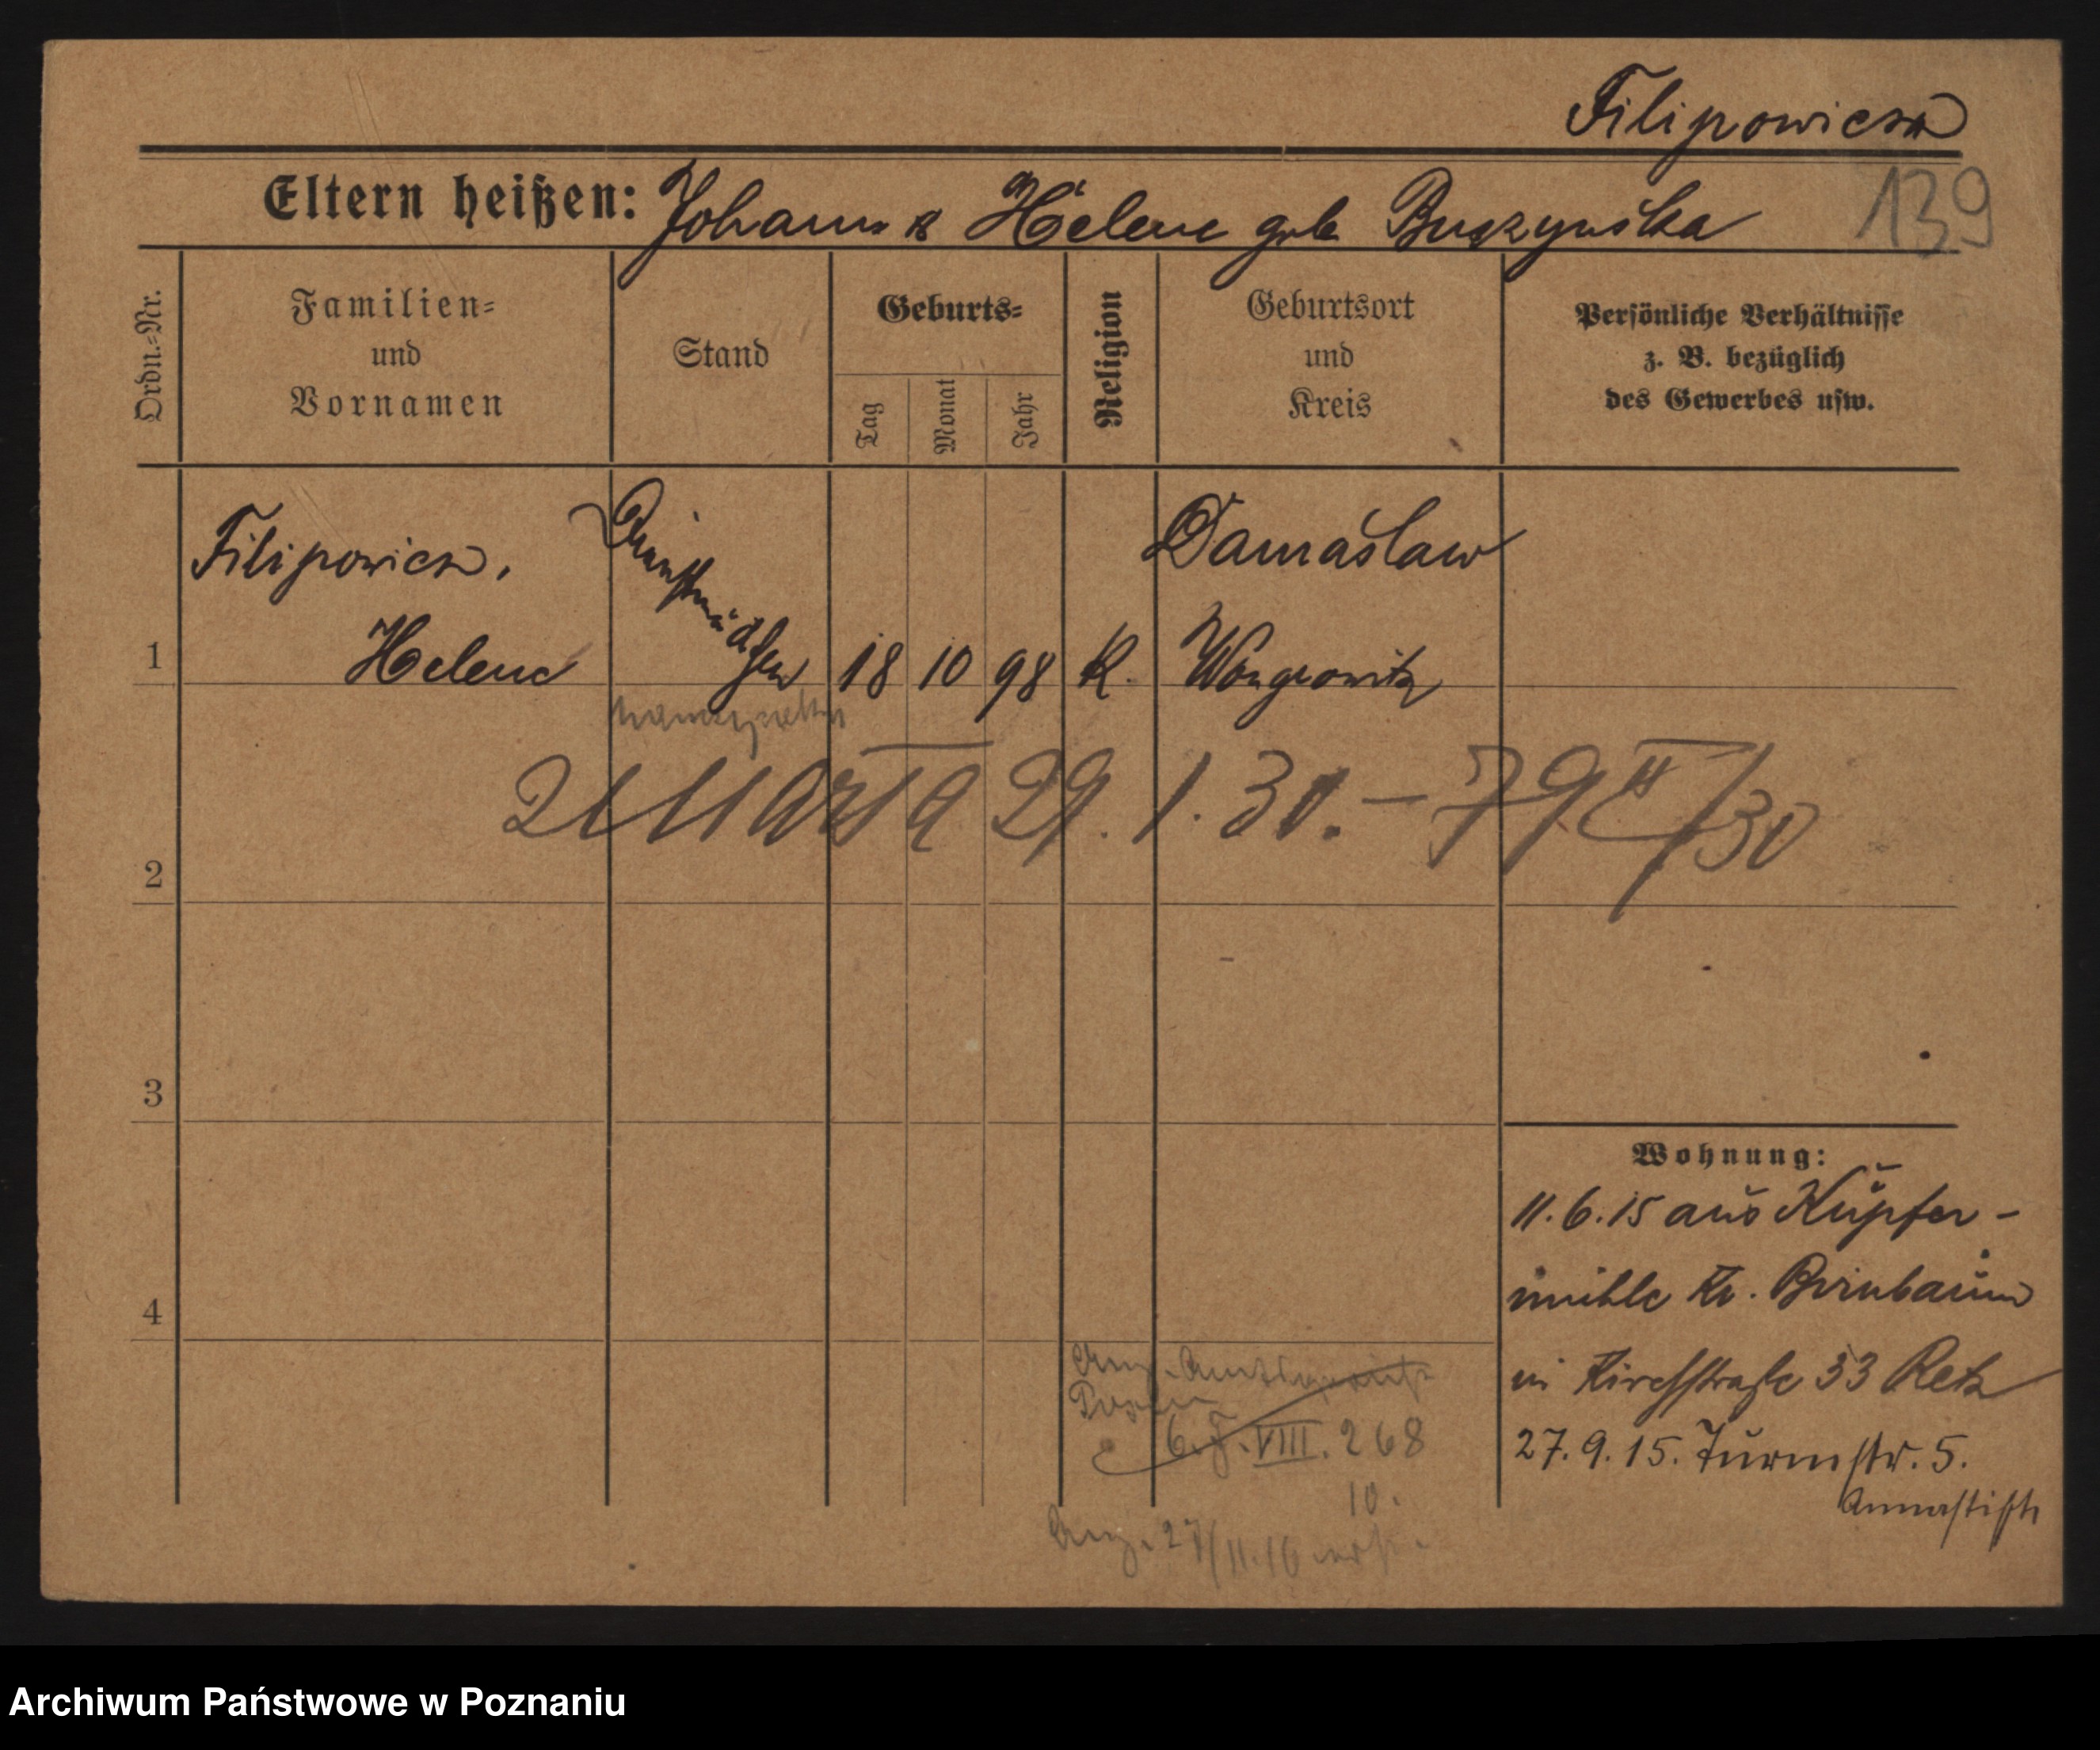 Filipowicz
139
Eltern heißen: Johann & Helene geb. Buszyńska
Ordn.-Nr.
Familien=
und
Vornamen
Stand
Geburts=
Tag
Monat
Jahr
Religion
Geburtsort
und
Kreis
Persönliche Verhältnisse
z. B. bezüglich
des Gewerbes usw.
1
Filipowicz,
Helene
Dienstmädchen
18 10 98 K.
Damaslaw
Wongrowitz
Zmarła 29. 1. 30. – 79 II/30
2
3
4
Wohnung:
11.6.15 aus Kupfer-
mühle Kr. Birnbaum
in Kirchstraße 33 Retz
27.9.15. Turmstr. 5.
Annastift
Anz. Amtsgericht
Posen
6. F. VIII. 268
10.
Anz. 27/11.16
Archiwum Państwowe w Poznaniu